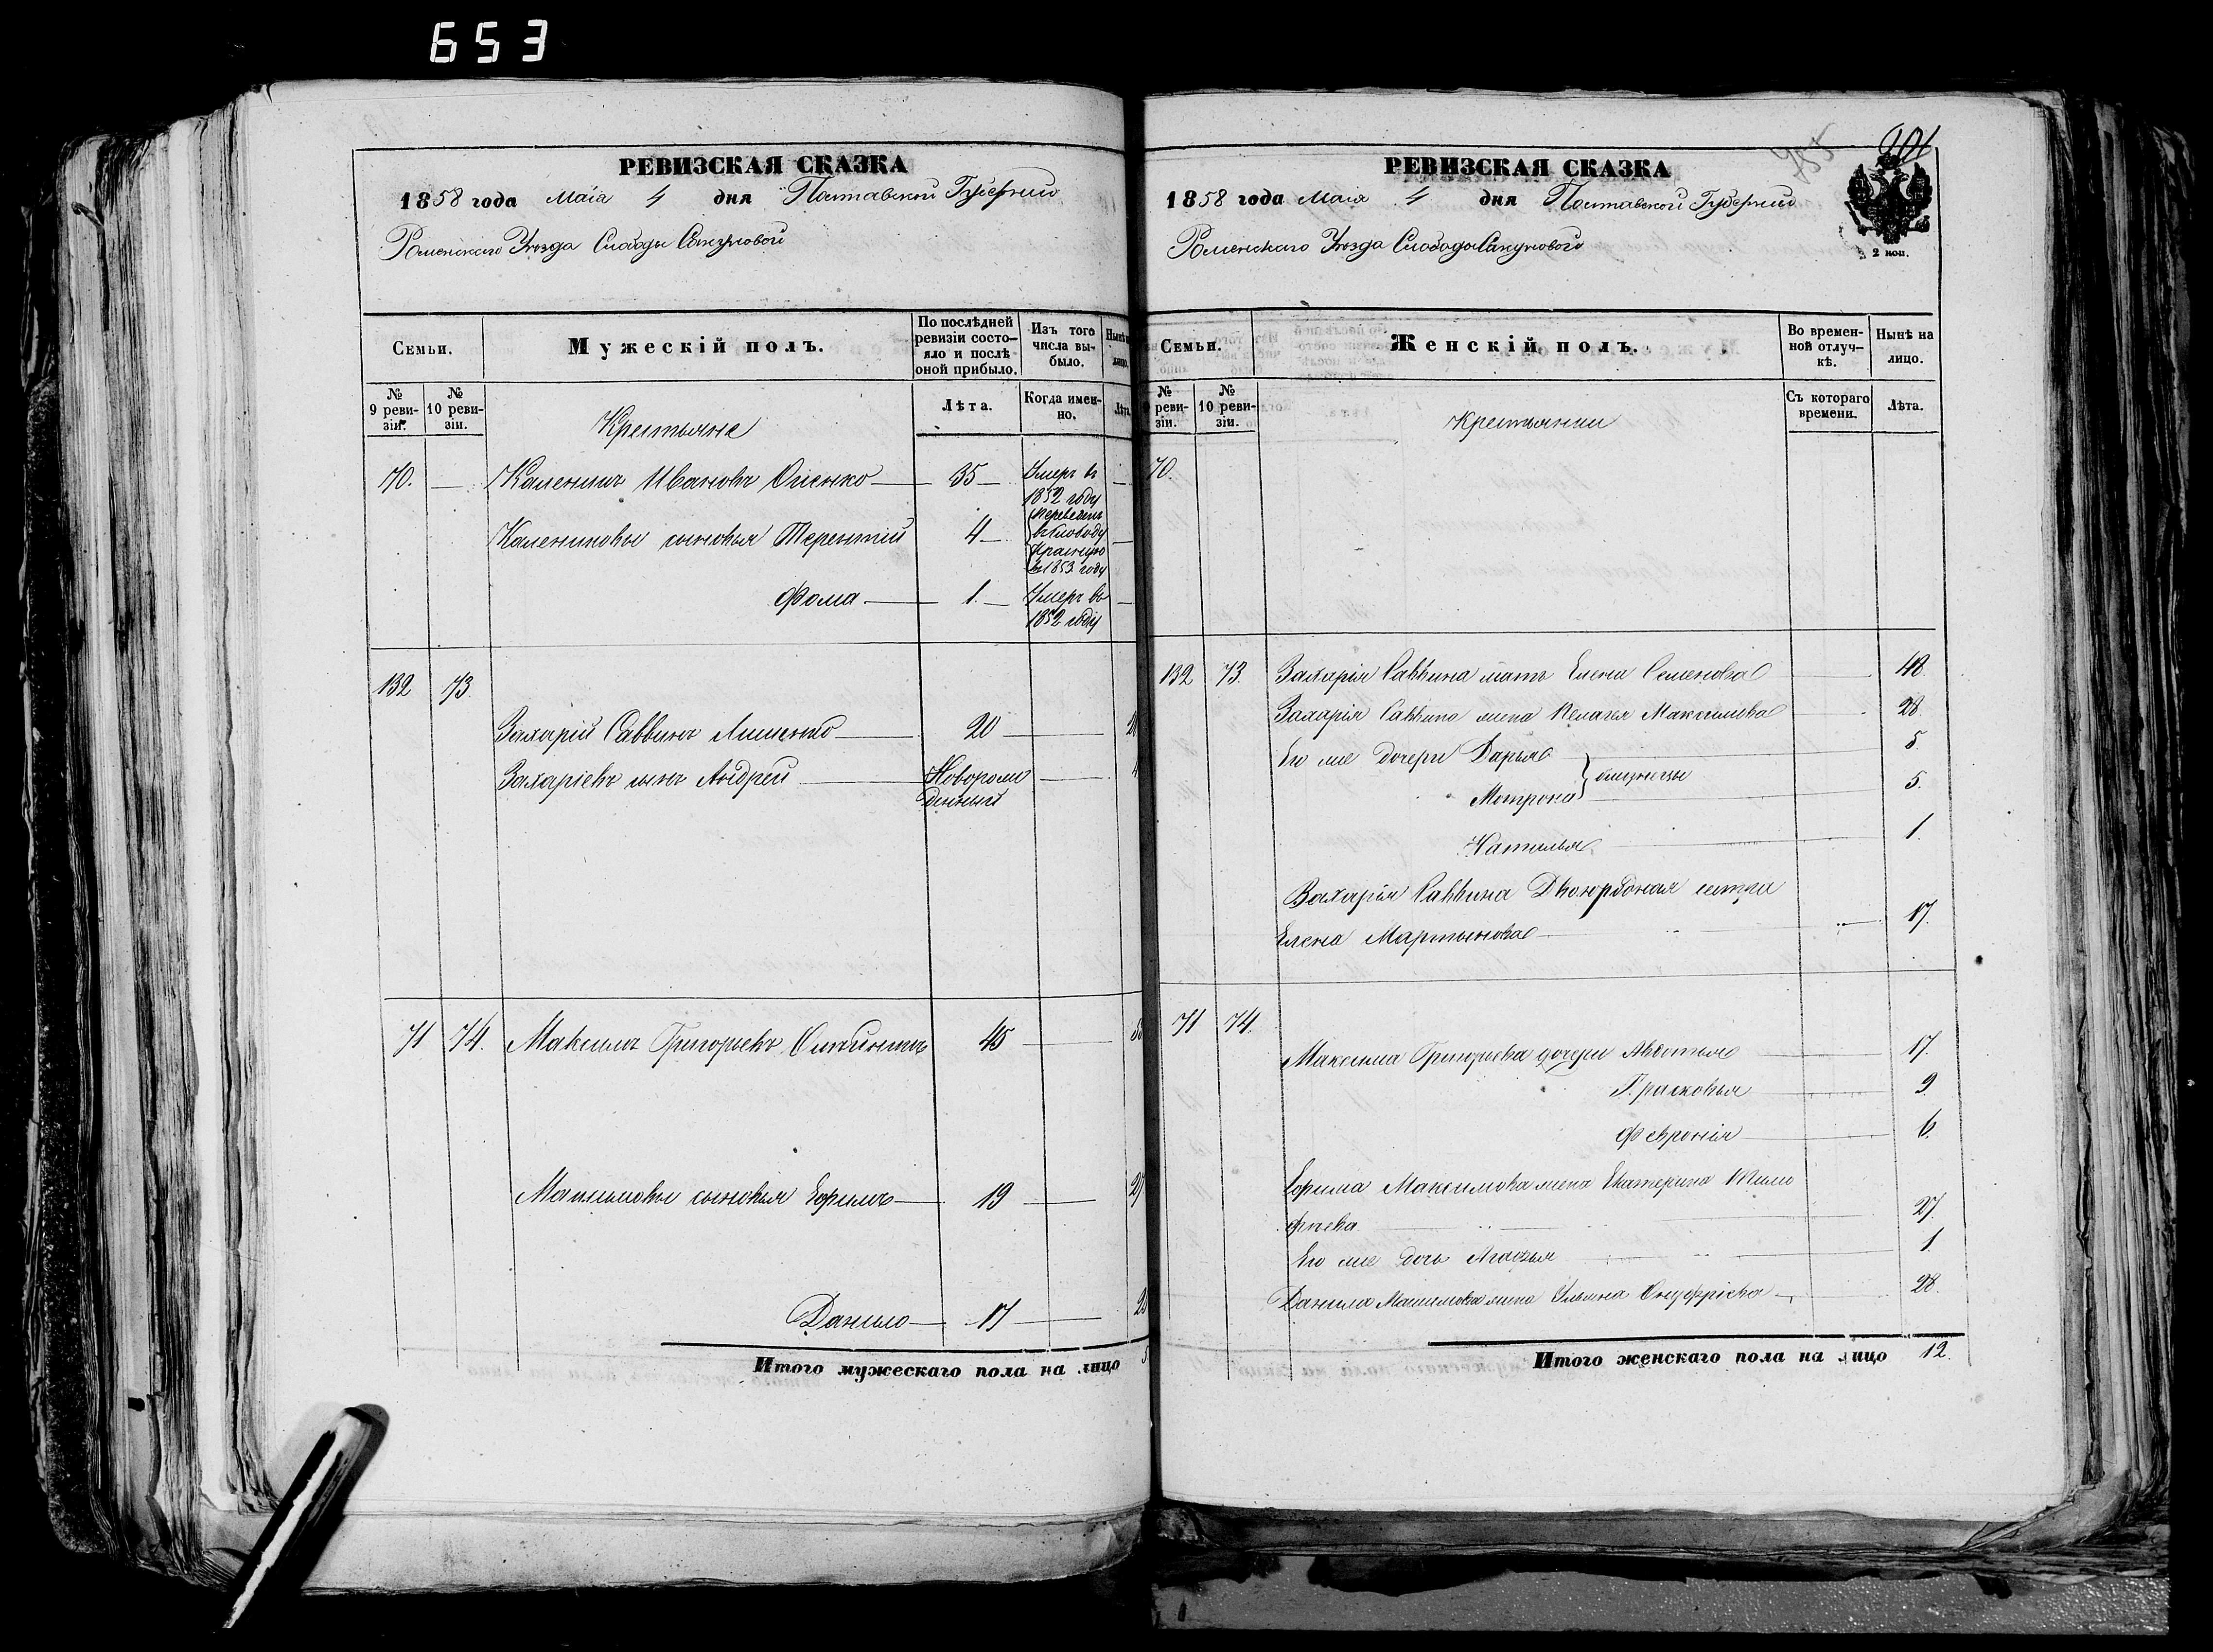 653
РЕВИЗСКАЯ СКАЗКА
1858 года Маія 4 дня Полтавской Губерніи
Роменскаго Уѣзда Слободы Сакуновой
Семьи.
Мужескій полъ.
По послѣдней ревизіи состояло и послѣ оной прибыло.
Изъ того числа выбыло.
Нынѣ
лицо.
№ 9 ревизіи.
№ 10 ревизіи.
Крестьяне
Лѣта.
Когда именно.
Лѣта
70. — Каленикъ Ивановъ 35 — Умеръ въ 1852 году —
Калениковы сыновья Терентій 4 — Переведенъ въ слободу Красную въ 1853 году —
Фома — 1. — Умеръ въ 1852 году —
132 73
Захарій Саввинъ Лишенко — 20 —
Захаріевъ сынъ Андрей — Новорожденный —
71 74. Максимъ Григорьевъ 45 —
Максимовы сыновья Ефимъ — 19 — 27
Данило — 17 —
Итого мужескаго пола на лицо
901
РЕВИЗСКАЯ СКАЗКА
1858 года Маія 4 дня Полтавской Губерніи
2 коп.
Роменскаго Уѣзда Слободы Сакуновой
Семьи.
Женскій полъ.
Во временной отлучкѣ.
Нынѣ на лицо.
№ 9 ревизіи.
№ 10 ревизіи.
Крестьянки
Съ котораго времени.
Лѣта.
70.
132 73. Захарія Саввина мать Елена Семенова — 48.
Захарія Саввина жена Пелагея Максимова — 28.
Его же дочери Дарья — 5.
близницы
Мотрона — 5.
Наталья — 1.
Захарія Саввина Двоюродная сестра
Елена Мартынова — 17.
71 74.
Максима Григорьева дочери Авдотья — 17.
Прасковья — 9.
Февронія — 6.
Ефима Максимова жена Екатерина Тимо
фѣева — 27.
Его же дочь Агафья — 1
Данила Максимова жена Ульяна Онуфріева — 28.
Итого женскаго пола на лицо 12.